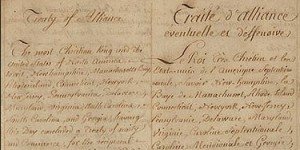 Treaty of Alliance
The most Christian King and the
United States of North America,
New Hampshire, Massachusetts Bay,
Rhodeisland, Connecticut, Newyork,
New Jersey, Pensylvania, Delaware,
Maryland, Virginia, North Carolina,
South Carolina, and Georgia, having
this Day concluded a Treaty of amity
and Commerce, for the reciprocal
Traité d'alliance
eventuelle et defensive
Le Roi très Chrêtien et les
Etats-unis de l'Amérique Septentrio-
Savoir, Newhampshire, la
Baye de Massachuset, Rhode island
Connecticut, Newyork, New Jersey,
Pensylvanie, Delaware, Maryland,
Virginie, Caroline Septentrionale,
Caroline Méridionale et Georgie,